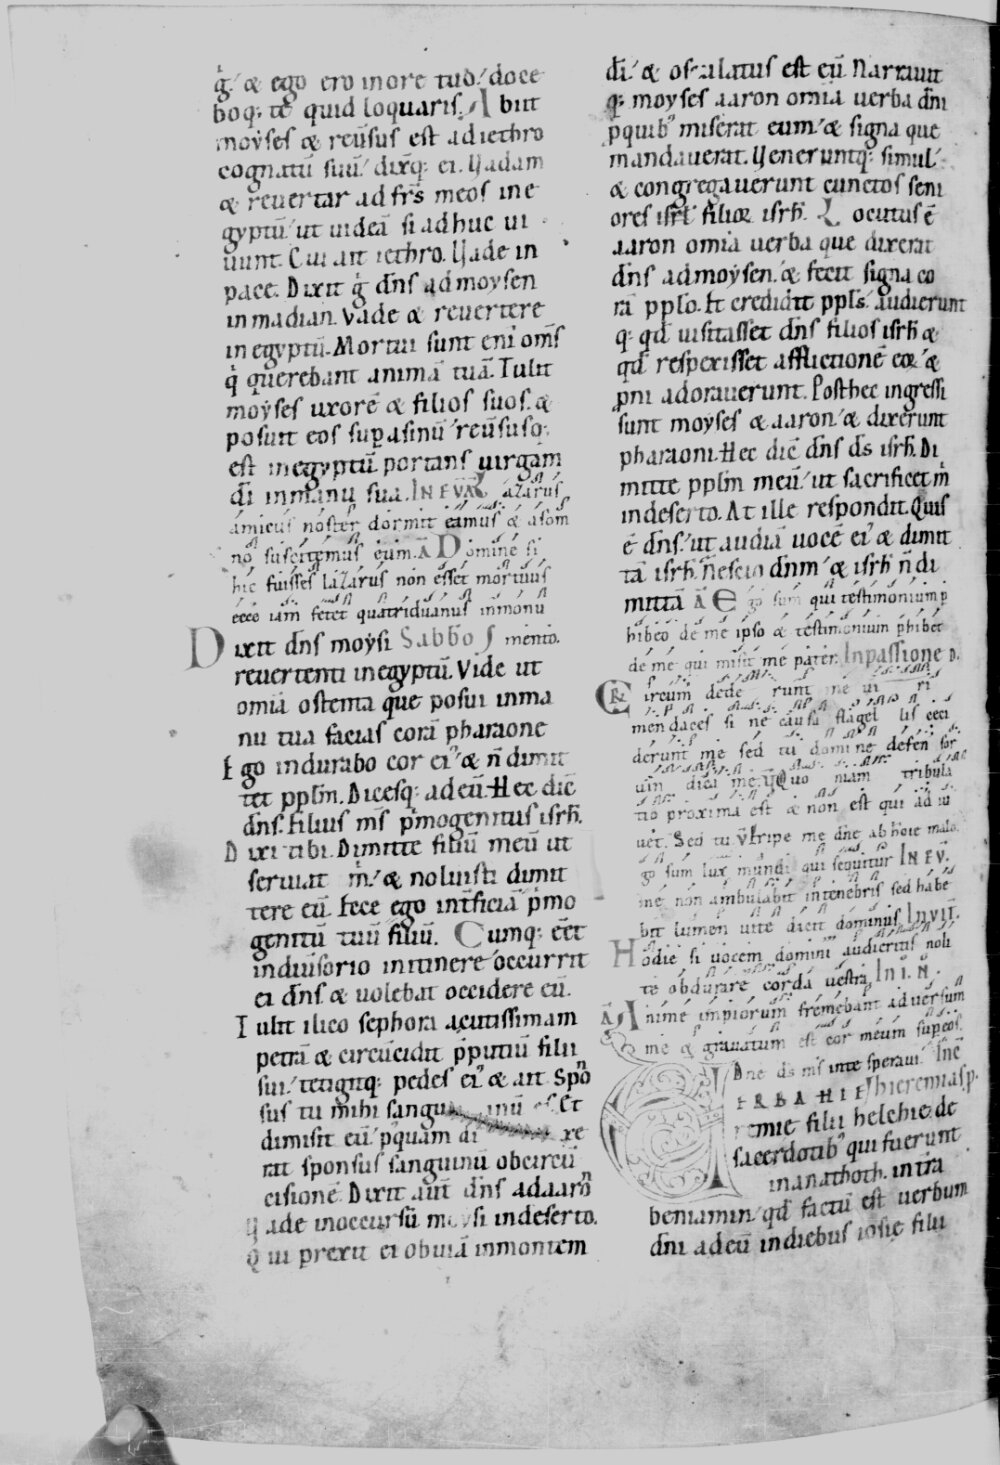 g̍ / & ego ero in ore tuo / doce
boq; te quid loquaris. Abiit
moẏses & reũsus est ad iethro
cognatũ suũ / dix̃q; ei. Vadam
& reuertar ad fr̃s meos in e
gyptũ / ut uideã si adhuc ui
uunt. Cui ait iethro. Vade in
pace. Dixit g̍ dñs ad moysen
in madian. Vade & reuertere
in egyptũ. Mortui sunt eni om̃s
q̍ querebant animã tuã. Tulit
moẏses uxorẽ & filios suos. &
posuit eos sup asinũ / reũsusq;
est in egyptũ portans uirgam
dĩ in manu sua. IN EVÃ Lazarus
amicus noster dormit eamus & a som
no suscitemus eum. Ã Domine si
hic fuisses lazarus non esset mortuus
ecce iam fetet quatriduanus in monu
Dixit dñs moysi Sabbõ mento.
reuertenti in egyptũ. Vide ut
omĩa ostenta que posui in ma
nu tua facias corã pharaone
Ego indurabo cor ei' & ñ dimit
tet pplm̃. Dicesq; ad eũ. Hec dic̃
dñs. filius m̃s p̍mogenitus isrl̃.
Dixi tibi. Dimitte filiũ meũ ut
seruiat m̍ / & noluisti dimit
tere eũ. Ecce ego int̃ficiã p̍mo
genitũ tuũ filiũ. Cumq; eẽt
in diũsorio in itinere / occurrit
ei dñs & uolebat occidere eũ.
Tulit ilico sephora acutissimam
petrã & circũcidit p̃putiũ filii
sui / tetigitq; pedes ei' & ait. Spõ
sus tu mihi sanguinũ es. Et
dimisit eũ / p'quam dixe
rat sponsus sanguinũ ob circũ
cisionẽ. Dixit aũt dñs ad aarõ
Vade in occursũ moysi in deserto.
Qui prexit ei obuiã in montem
dĩ / & osculatus est eũ. Narrauit
q; moyses aaron omĩa uerba dñi
p quib' miserat eum / & signa que
mandauerat. Veneruntq; simul /
& congregauerunt cunctos seni
ores isrl̃ filioꝝ isrl̃. Locutus ẽ
aaron omĩa uerba que dixerat
dñs ad moysen. & fecit signa co
rã pplõ. Et credidit ppl̃s / audierunt
q; qd̃ uisitasset dñs filios isrl̃ &
qd̃ respexisset afflictionẽ eoꝝ / &
pni adorauerunt. Post hec ingressi
sunt moyses & aaron / & dixerunt
pharaoni. Hec dic̃ dñs ds̃ isrl̃. Di
mitte pplm̃ meũ / ut sacrificet m̍
in deserto. At ille respondit. Quis
ẽ dñs / ut audiã uocẽ ei' & dimit
tã isrl̃. Nescio dñm / & isrl̃ ñ di
mittã Ã Ego sum qui testimonium p
hibeo de me ipso & testimonium phibet
de me qui misit me pater. In passione D.
Circum dede runt me ui ri
mendaces si ne causa flagel lis ceci
derunt me sed tu domine defen sor
uin dica me. V Quo niam tribula
tio proxima est & non est qui ad iu
uet. Sed tu V Eripe me dñe ab hoie malo.
go sum lux mundi qui sequitur IN EV̄.
me non ambulabit in tenebris sed habe
bit lumen uite dicit dominus. INVIT.
Hodie si uocem domini audieritis noli
te obdurare corda uestra. IN I. N.
Ã Anime impiorum fremebant aduersum
me & grauatum est cor meum sup eos.
Dñe ds̃ m̃s in te speraui. INC
ERBA HIE Ihieremias p.
remie filii helchie de
sacerdotib' qui fuerunt
in anathoth. in tr̃a
beniamin / qd̃ factũ est uerbum
dñi ad eũ in diebus iosie filii